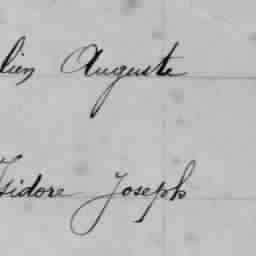 lien Auguste
Isidore Joseph